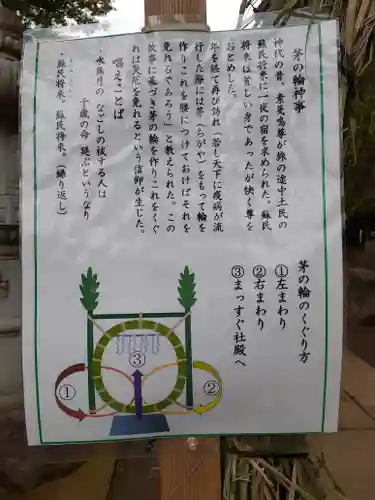 茅の輪神事
神代の昔、素戔鳴尊が旅の途中土民の
蘇民将来に一夜の宿を求められた。蘇民
将来は貧しい身であったが快く尊を
おとめした。
年を経て再び訪れ「若し天下に疫病が流
行した際には茅（ちがや）をもって輪を
作りこれを腰につけておけばそれを
免れるであろう」と教えられた。この
故事に基づき茅の輪を作りこれをくぐ
れば災厄を免れるという信仰が生じた。
唱えことば
・水無月の なごしの祓する人は
千歳の命 延ぶというなり
・蘇民将来。蘇民将来。（繰り返し）
茅の輪のくぐり方
①左まわり
②右まわり
③まっすぐ社殿へ
①
③
②